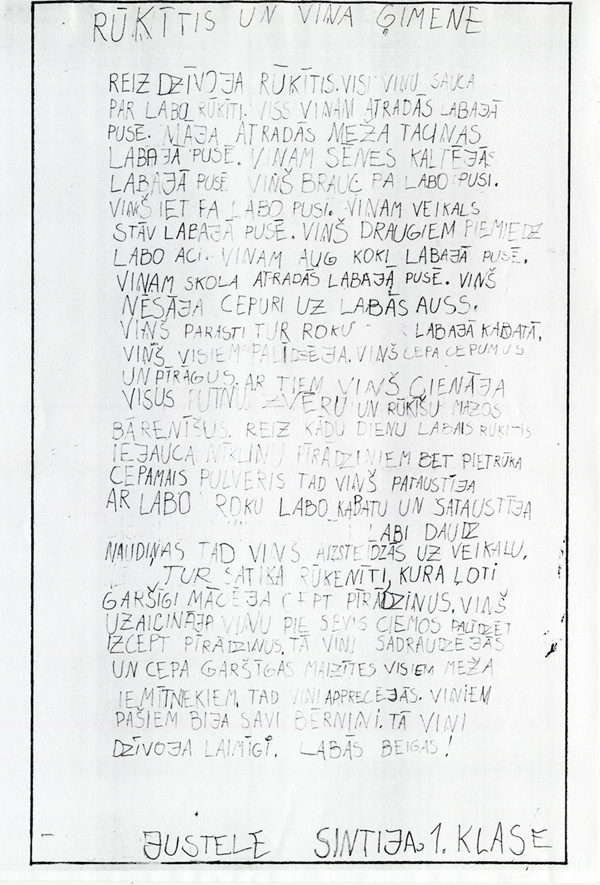 RŪĶĪTIS UN VIŅA ĢIMENE
REIZ DZĪVOJA RŪĶĪTIS. VISI VIŅU SAUCA
PAR LABO RŪĶĪTI. VISS VIŅAM ATRADĀS LABAJĀ
PUSĒ. MĀJA ATRADĀS MEŽA TACIŅAS
LABAJĀ PUSĒ. VIŅAM SĒNES KALTĒJĀS
LABAJĀ PUSĒ VIŅŠ BRAUC PA LABO PUSI.
VIŅŠ IET PA LABO PUSI. VIŅAM VEIKALS
STĀV LABAJĀ PUSĒ. VIŅŠ DRAUGIEM PIEMIEDZ
LABO ACI. VIŅAM AUG KOKI LABAJĀ PUSĒ.
VIŅAM SKOLA ATRADĀS LABAJĀ PUSĒ. VIŅŠ
NĒSĀJA CEPURI UZ LABĀS AUSS.
VIŅŠ PARASTI TUR ROKU LABAJĀ KABATĀ.
VIŅŠ VISIEM PALĪDZĒJA. VIŅŠ CEPA CEPUMUS
UN PĪRĀGUS. AR TIEM VIŅŠ CIENĀJA
VISUS PUTNU, ZVĒRU UN RŪĶĪŠU MAZOS
BĀRENĪŠUS. REIZ KĀDU DIENU LABAIS RŪĶĪTIS
IEJAUCA MĪKLIŅU PĪRĀDZIŅIEM BET PIETRŪKA
CEPAMAIS PULVERIS TAD VIŅŠ PATAUSTĪJA
AR LABO ROKU LABO KABATU UN SATAUSTĪJA
LABI DAUDZ
NAUDIŅAS TAD VIŅŠ AIZSTEIDZĀS UZ VEIKALU.
TUR SATIKA RŪĶENĪTI, KURA ĻOTI
GARŠĪGI MĀCĒJA CEPT PĪRĀDZIŅUS. VIŅŠ
UZAICINĀJA VIŅU PIE SEVIS CIEMOS PALĪDZĒT
IZCEPT PĪRĀDZIŅUS. TĀ VIŅI SADRAUDZĒJĀS
UN CEPA GARŠĪGAS MAIZĪTES VISIEM MEŽA
IEMĪTNIEKIEM. TAD VIŅI APPRECĒJĀS. VIŅIEM
PAŠIEM BIJA SAVI BĒRNIŅI. TĀ VIŅI
DZĪVOJA LAIMĪGI. LABĀS BEIGAS!
JUSTELE SINTIJA. 1. KLASE